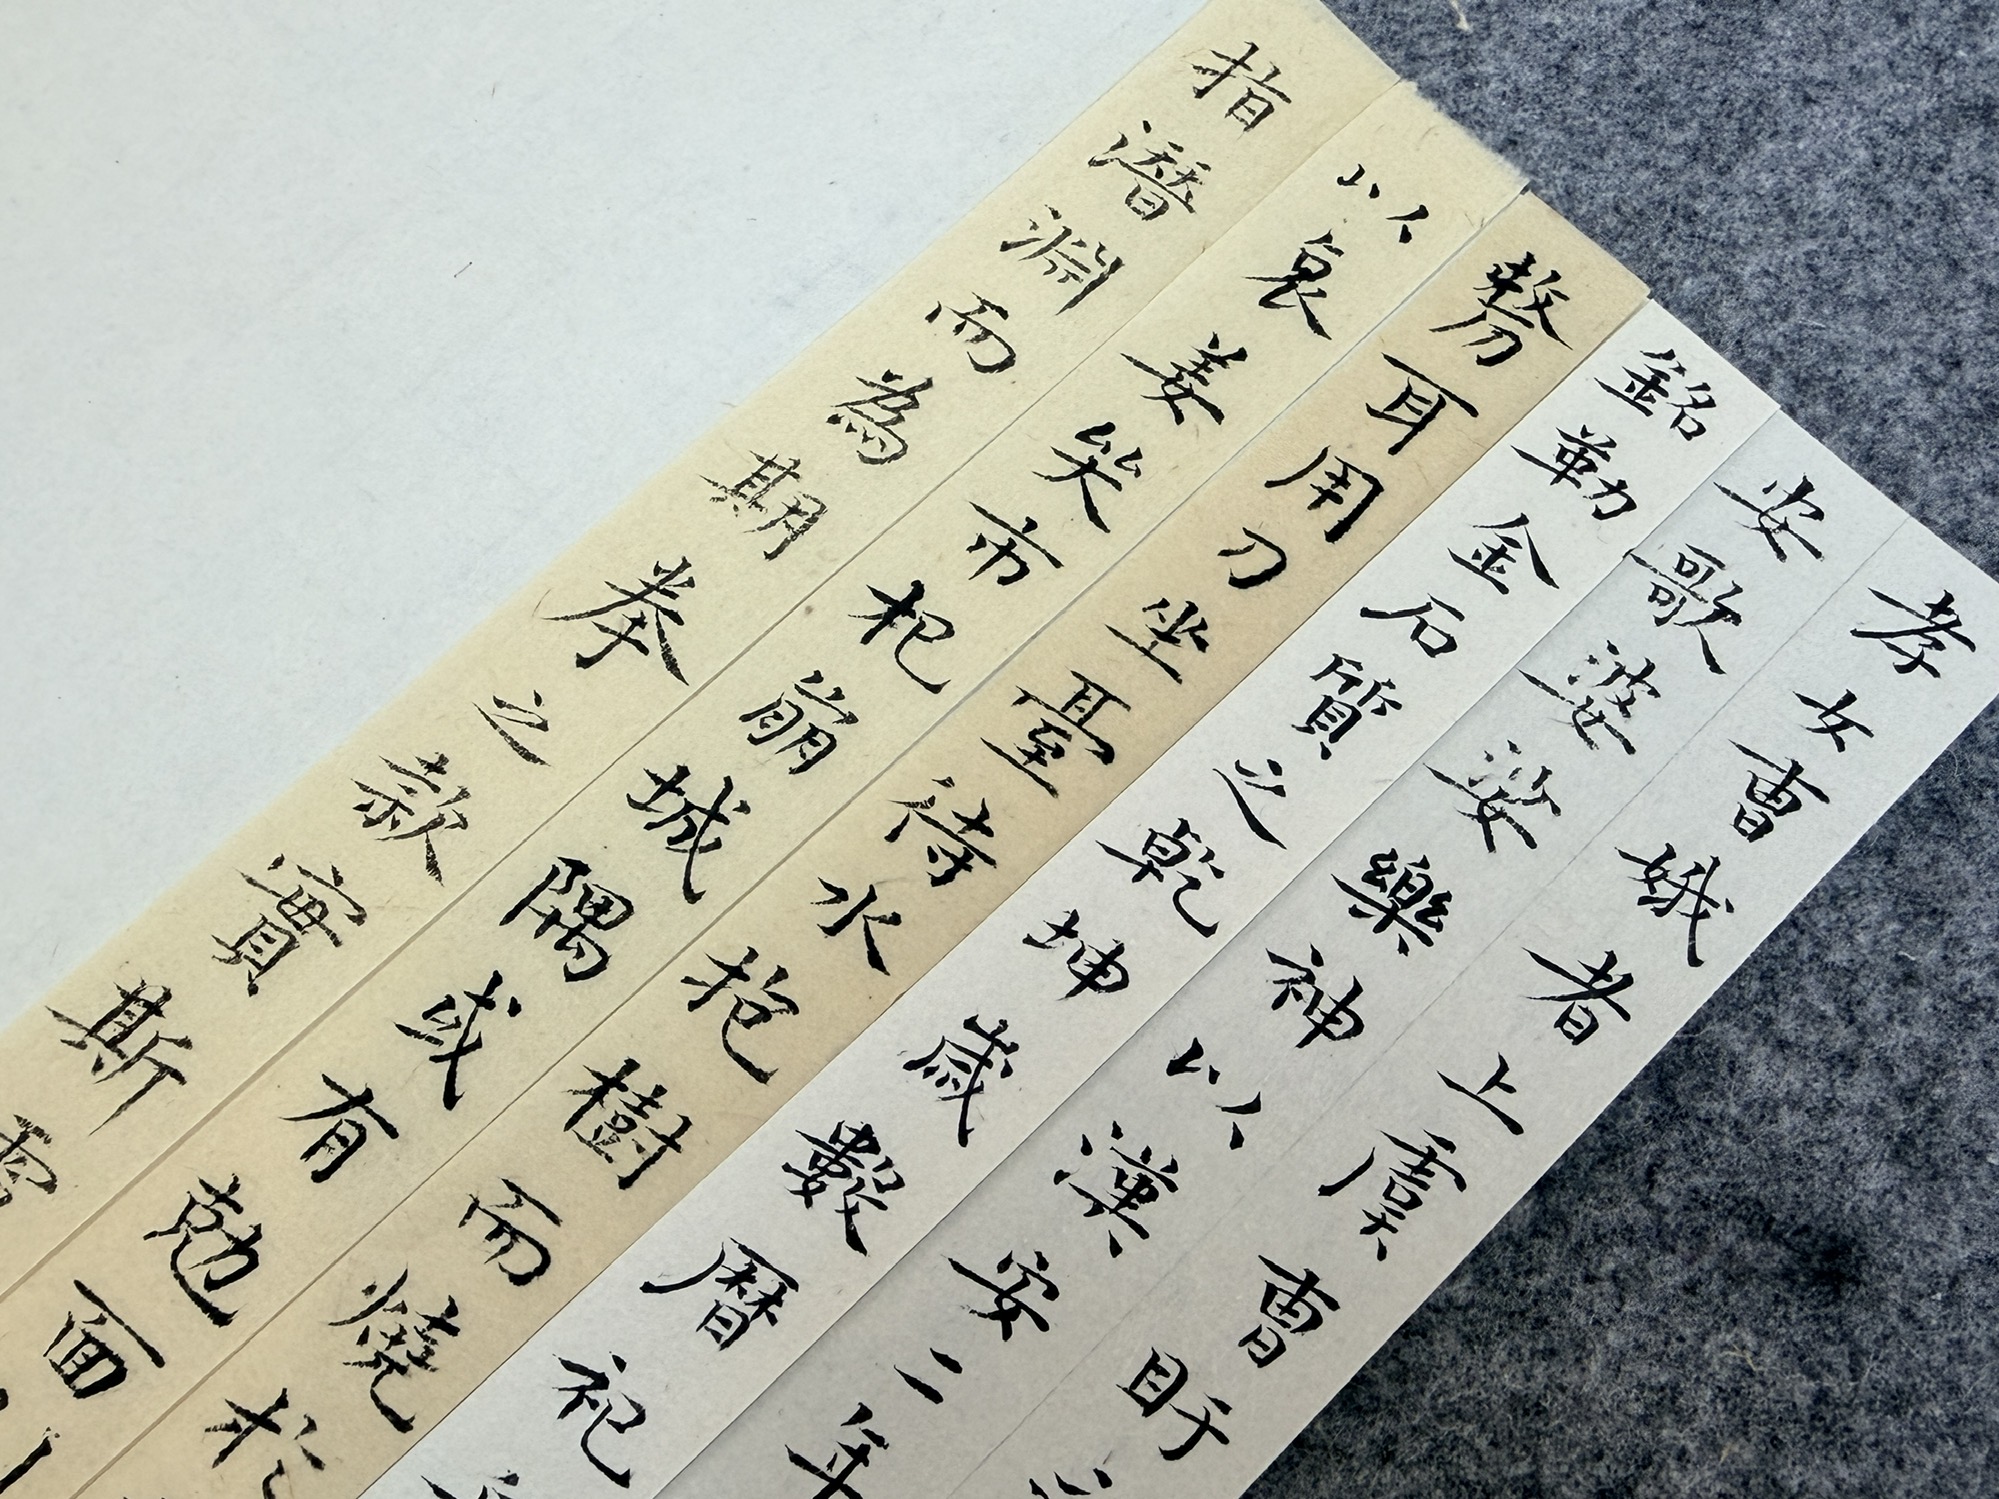 孝女曹娥者上虞曹盱
安歌婆娑樂神以漢安二年
銘勒金石質之乾坤歲數曆祀
剺耳用刀坐臺待水抱樹而燒於
以哀姜哭市杞崩城隅或有勊面
指潛淵而為期孝之款實斯